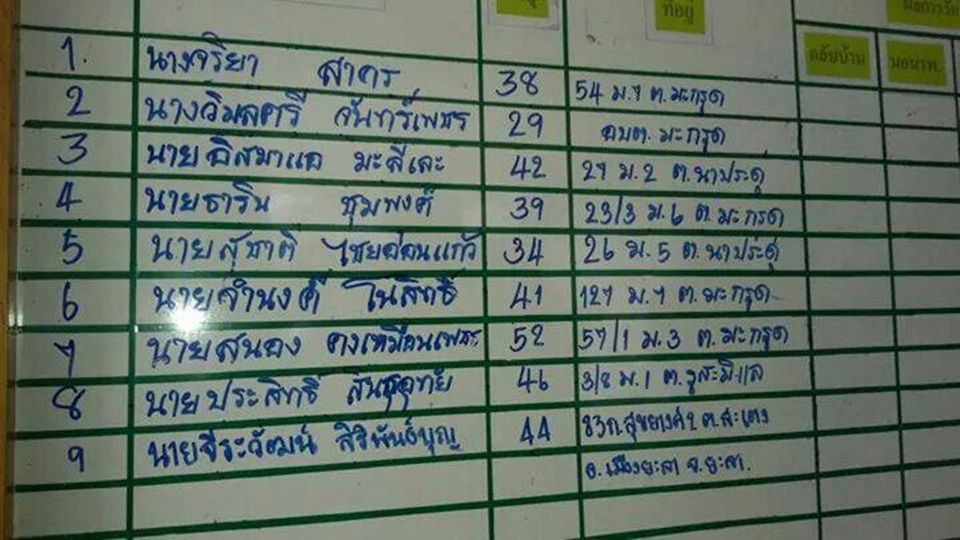 ที่อยู่
ผลการรั
กลับบ้าน นอนรพ.
1 นางจริยา สาคร 38 54 ม.7 ต.มะกรูด
2 นางวิมลศรี จันทร์เพชร 29 อบต.มะกรูด
3 นายอิสมาแอ มะลีเละ 42 27 ม.2 ต.นาประดู่
4 นายธาริน ชุมพงศ์ 39 23/3 ม.6 ต.มะกรูด
5 นายสุชาติ ไชยอ่อนแก้ว 34 26 ม.5 ต.นาประดู่
6 นายจำนงค์ ไนสิทธิ์ 41 127 ม.7 ต.มะกรูด
7 นายสนอง คงเหมือนเพชร 52 57/1 ม.3 ต.มะกรูด
8 นายประสิทธิ์ สินธุอุทัย 46 3/8 ม.1 ต.รูสะมิแล
9 นายจีระวัฒน์ สิริพันธ์บุญ 44 83ก.สุขยางค์2 ต.สะเตง
อ.เมืองยะลา จ.ยะลา.